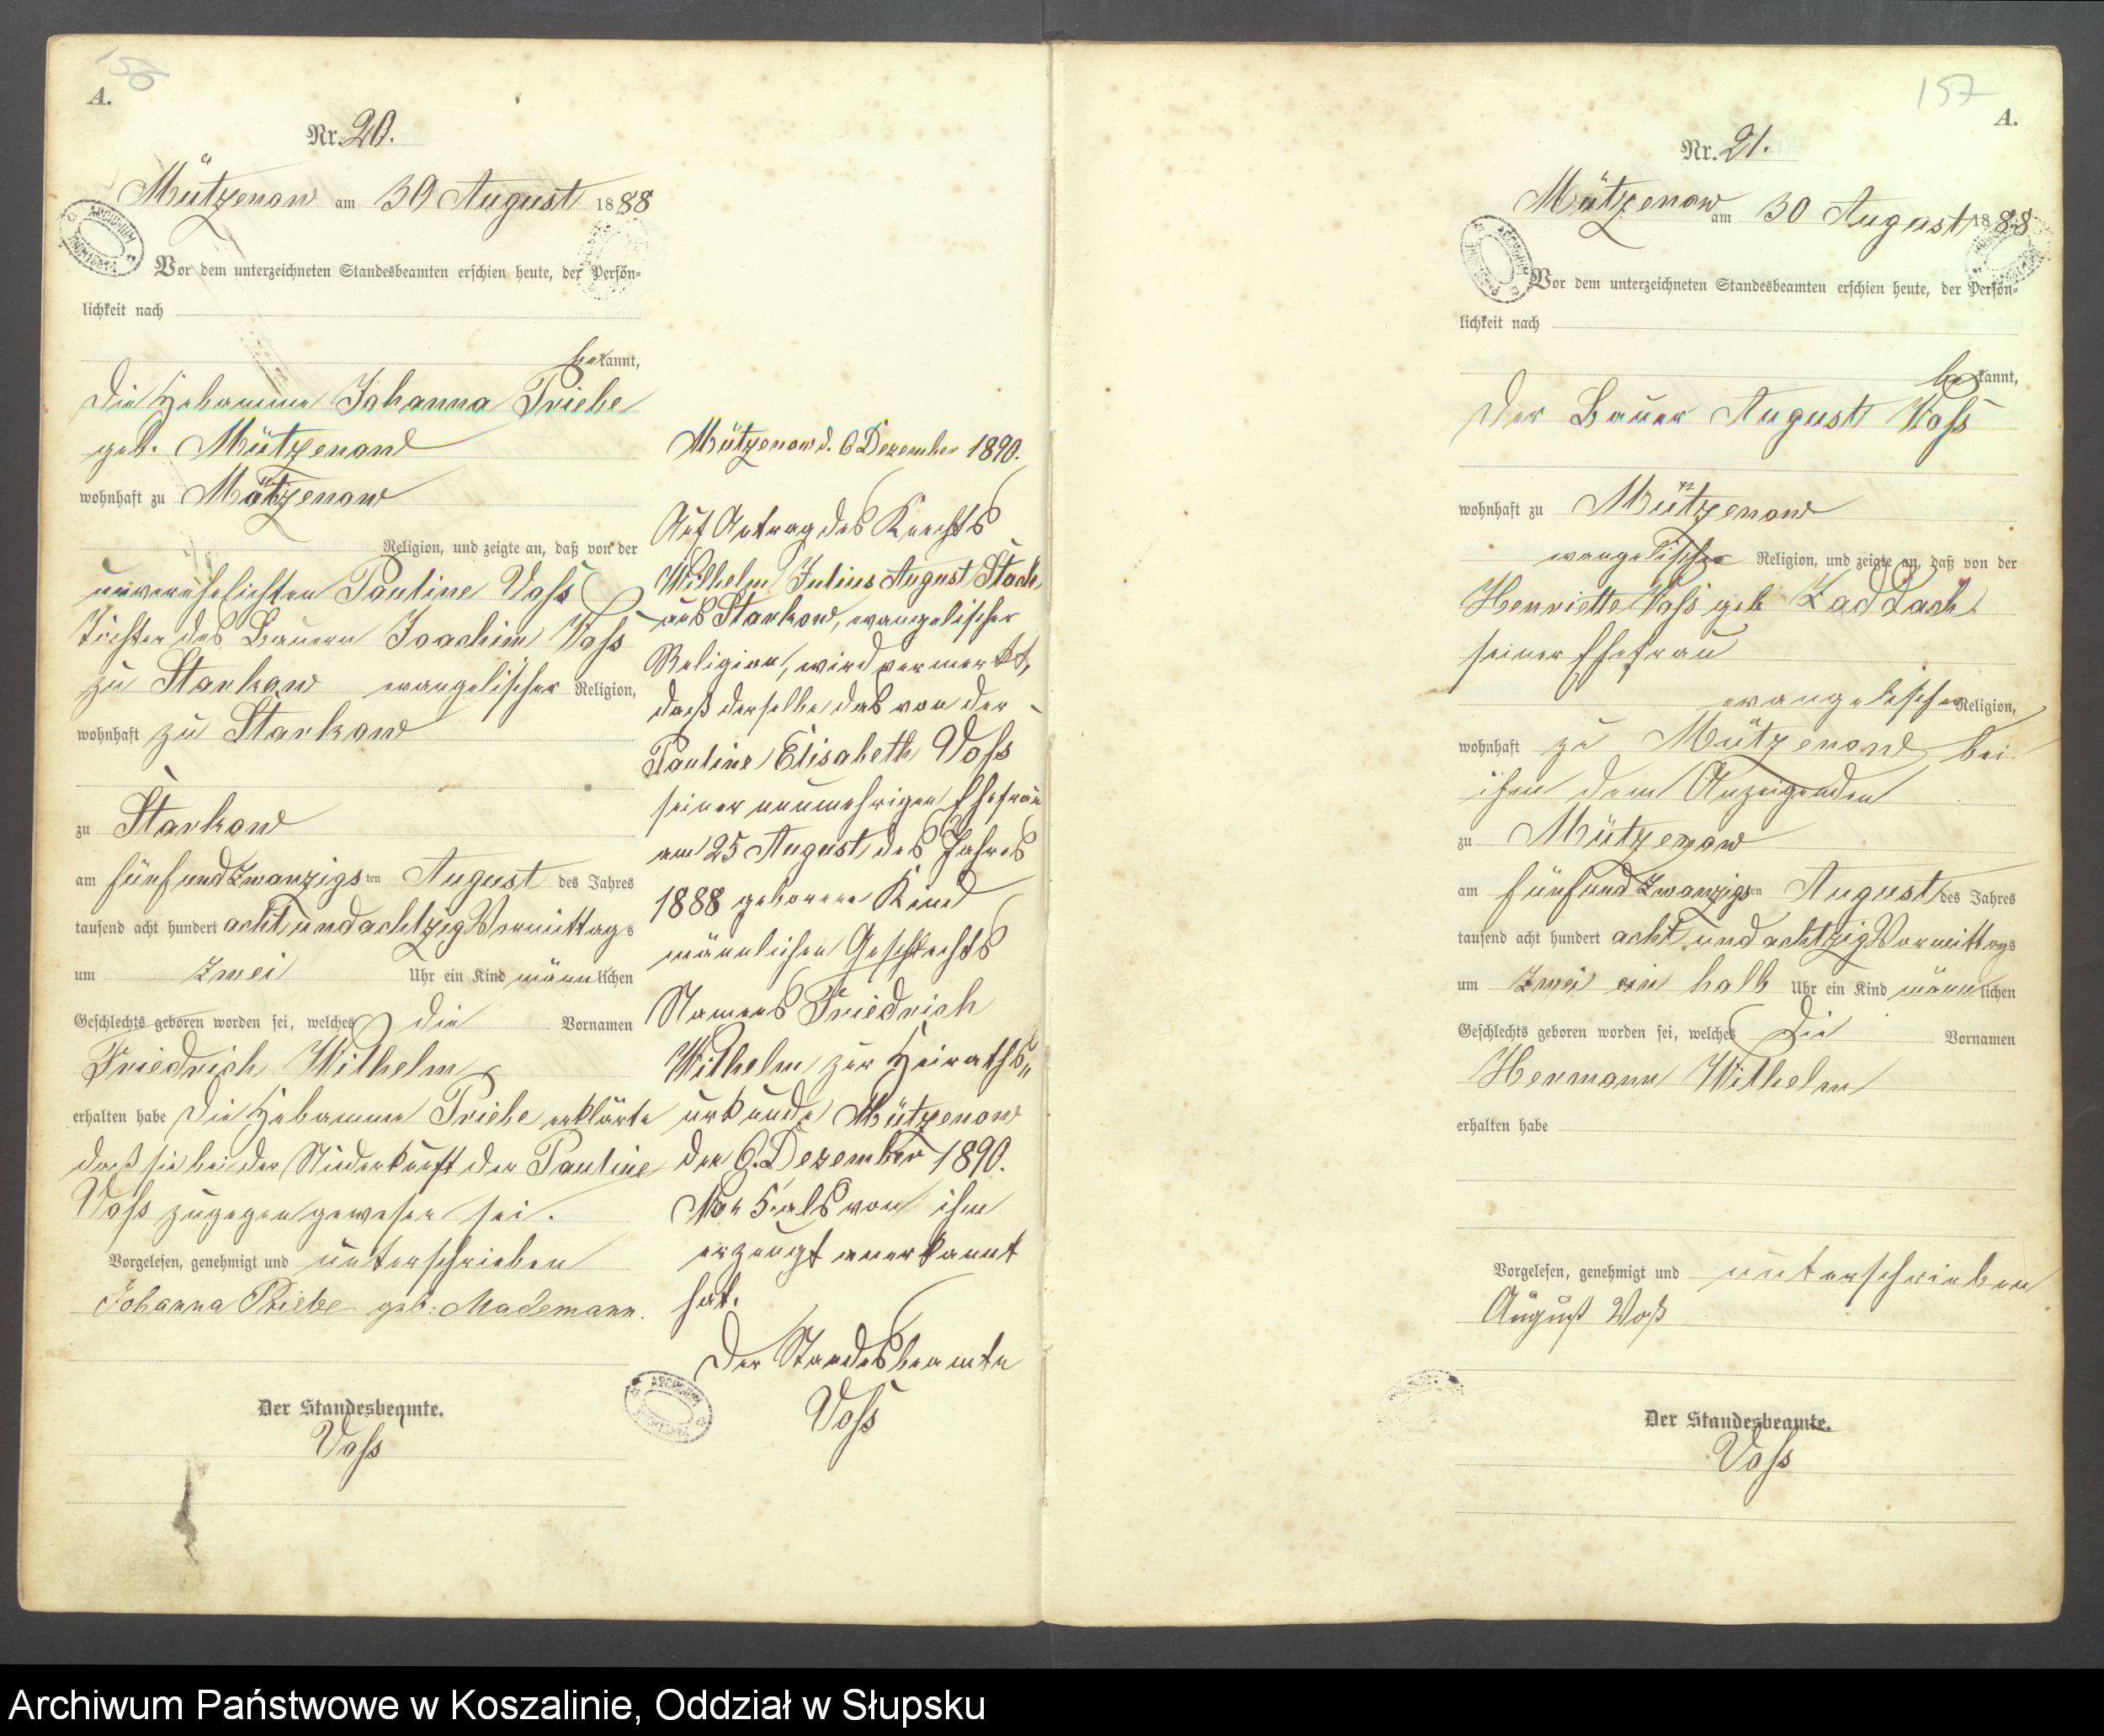 156
A.
Nr. 20.
Mützenow am 30 August 1888
Vor dem unterzeichneten Standesbeamten erschien heute, der Persön-
lichkeit nach
bekannt,
die Hebamme Johanna Priebe
geb. Mützenow
wohnhaft zu Mützenow
Religion, und zeigte an, daß von der
unverehelichten Pauline Voss
Tochter des Bauern Joachim Voss
zu Starkow evangelischer Religion,
wohnhaft zu Starkow
zu Starkow
am fünf und zwanzigsten August des Jahres
tausend acht hundert acht und achtzig Vormittags
um zwei Uhr ein Kind männlichen
Geschlechts geboren worden sei, welches die Vornamen
Friedrich Wilhelm
erhalten habe die Hebamme Priebe erklärte
daß sie bei der Niederkunft der Pauline
Voss zugegen gewesen sei.
Vorgelesen, genehmigt und unterschrieben
Johanna Priebe geb: Mademann.
Der Standesbeamte.
Voss
Mützenow d. 6 Dezember 1890.
Auf Antrag des Knechts
Wilhelm Julius August Stach
aus Starkow, evangelischer
Religion, wird vermerkt,
daß derselbe das von der
Pauline Elisabeth Voss
seiner nunmehrigen Ehefrau
am 25 August des Jahres
1888 geborene Kind
männlichen Geschlechts
Namens Friedrich
Wilhelm zur Heiraths„
urkunde Mützenow
den 6. Dezember 1890.
Nor 5. als von ihm
erzeugt anerkannt
hat.
Der Standesbeamte
Voss
157
A.
Nr. 21.
Mützenow am 30 August 1888
Vor dem unterzeichneten Standesbeamten erschien heute, der Persön-
lichkeit nach
bekannt,
der Bauer August Voss
wohnhaft zu Mützenow
evangelischer Religion, und zeigte an, daß von der
Henriette Voss geb Zaddach
seiner Ehefrau
evangelischer Religion,
wohnhaft zu Mützenow bei
ihm dem Anzeigenden
zu Mützenow
am fünf und zwanzigsten August des Jahres
tausend acht hundert acht und achtzig Vormittags
um zwei ein halb Uhr ein Kind männlichen
Geschlechts geboren worden sei, welches die Vornamen
Hermann Wilhelm
erhalten habe
Vorgelesen, genehmigt und unterschrieben
August Voß
Der Standesbeamte.
Voss
Archiwum Państwowe w Koszalinie, Oddział w Słupsku